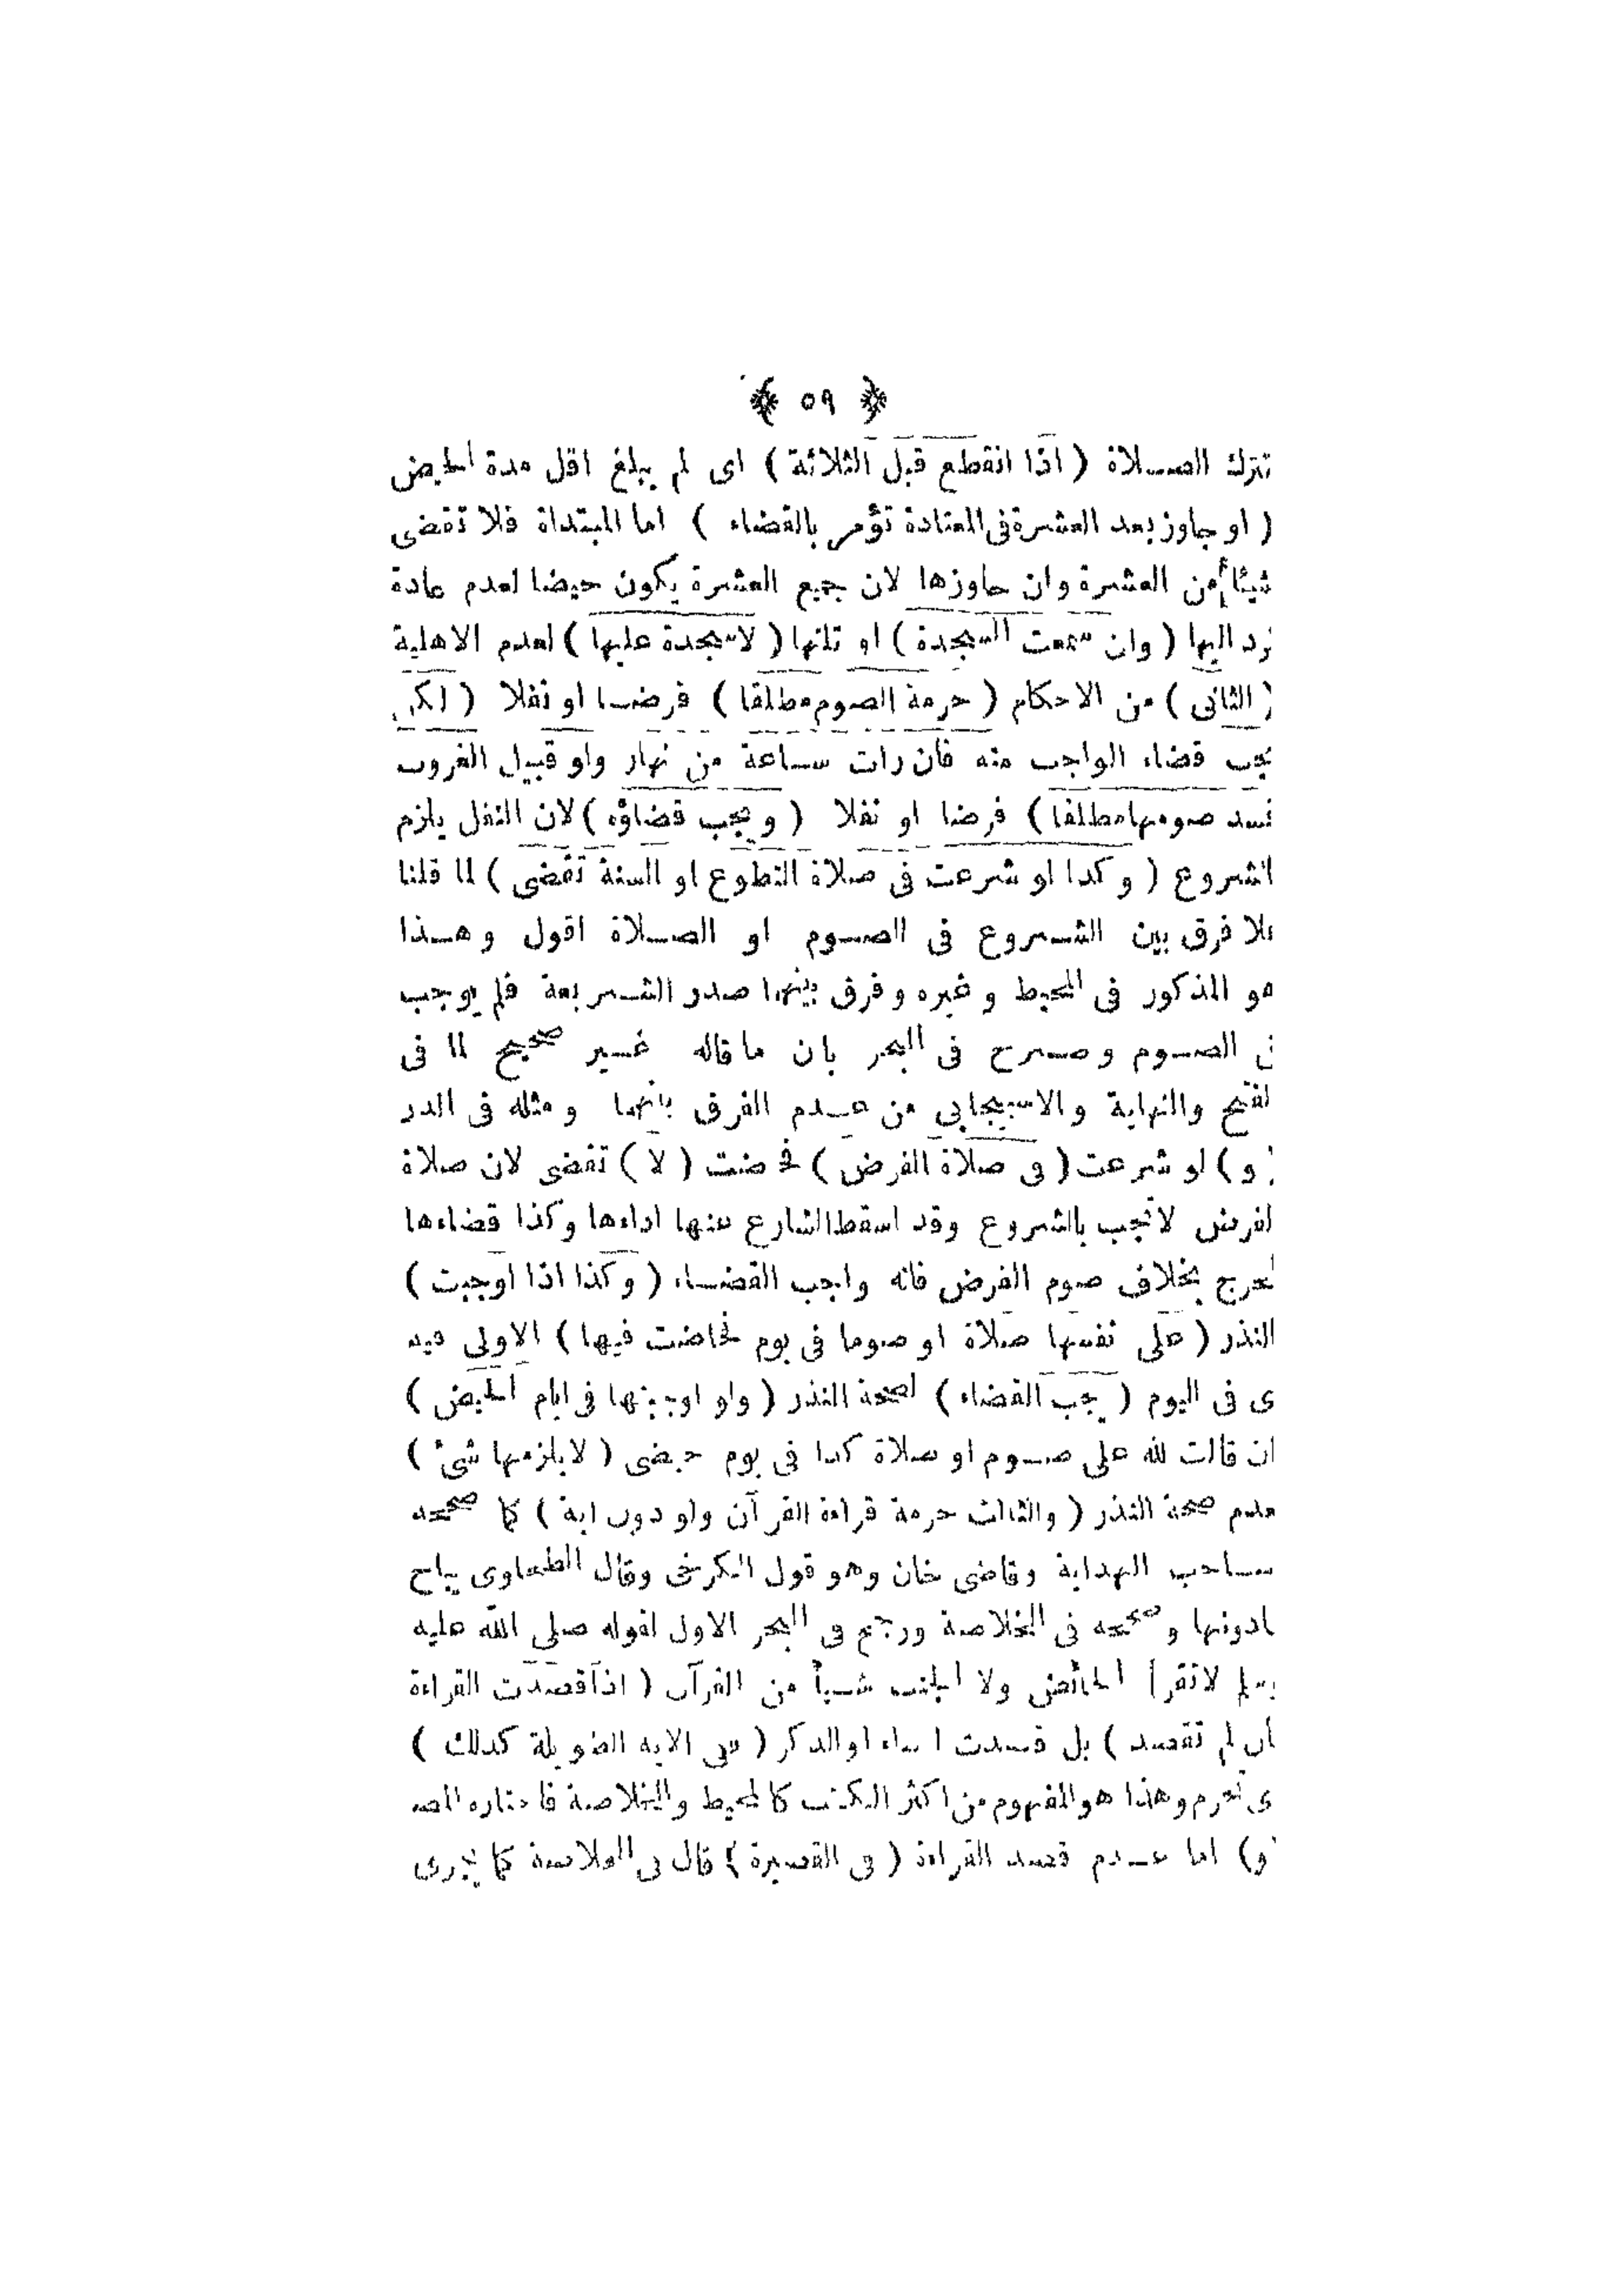 ﴿ ٥٩ ﴾
تترك الصلاة ( اذا انقطع قبل الثلاثة ) اى لم يبلغ اقل مدة الحيض
( او جاوز بعد العشرة فى المعتادة تؤمر بالقضاء ) اما المبتدأة فلا تقضى
شيئا من العشرة وان جاوزها لان جميع العشرة يكون حيضا لعدم عادة
ترد اليها ( وان سمعت السجدة ) او تلتها ( لا سجدة عليها ) لعدم الاهلية
( الثانى ) من الاحكام ( حرمة الصوم مطلقا ) فرضا او نفلا ( لكن
يجب قضاء الواجب منه فان رات ساعة من نهار ولو قبيل الغروب
فسد صومها مطلقا ) فرضا او نفلا ( ويجب قضاؤه ) لان النفل يلزم
الشروع ( وكذا لو شرعت فى صلاة التطوع او السنة تقضى ) لما قلنا
فلا فرق بين الشروع فى الصوم او الصلاة اقول وهذا
هو المذكور فى المحيط وغيره وفرق بينهما صدر الشريعة فلم يوجب
فى الصوم وصرح فى البحر بان ما قاله غير صحيح لما فى
لفتح والنهاية والاسبيجابى من عدم الفرق بينهما ومثله فى الدر
( و ) لو شرعت ( فى صلاة الفرض ) فحاضت ( لا ) تقضى لان صلاة
لفرض لا تجب بالشروع وقد اسقط الشارع عنها اداءها وكذا قضاءها
لحرج بخلاف صوم الفرض فانه واجب القضاء ( وكذا اذا اوجبت )
النذر ( على نفسها صلاة او صوما فى يوم فحاضت فيها ) الاولى فيه
ى فى اليوم ( يجب القضاء ) لصحة النذر ( ولو اوجبتها فى ايام الحيض )
ان قالت لله على صوم او صلاة كذا فى يوم حيضى ( لا يلزمها شئ )
عدم صحة النذر ( والثالث حرمة قراءة القرآن ولو دون اية ) كما صححه
صاحب الهداية وقاضى خان وهو قول الكرخى وقال الطحاوى يباح
مادونها وصححه فى الخلاصة ورجح فى البحر الاول لقوله صلى الله عليه
وسلم لا تقرأ الحائض ولا الجنب شيأ من القرآن ( اذا قصدت القراءة
ان لم تقصد ) بل قصدت الثناء او الذكر ( ففى الاية الطويلة كذلك )
ى تحرم وهذا هو المفهوم من اكثر الكتب كالمحيط والخلاصة فاختاره المص
و ) اما عدم قصد القراءة ( فى القصيرة ) قال فى الخلاصة كما يجرى